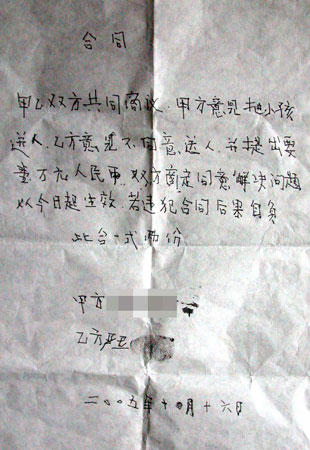 合同
甲乙双方共同商议.甲方意见把小孩
送人.乙方意见不同意送人.并提出要
壹万元人民币.双方商定同意解决问题
从今日起生效.若违犯合同后果自负
此合一式两份
甲方
乙方
二00五年十月十六日